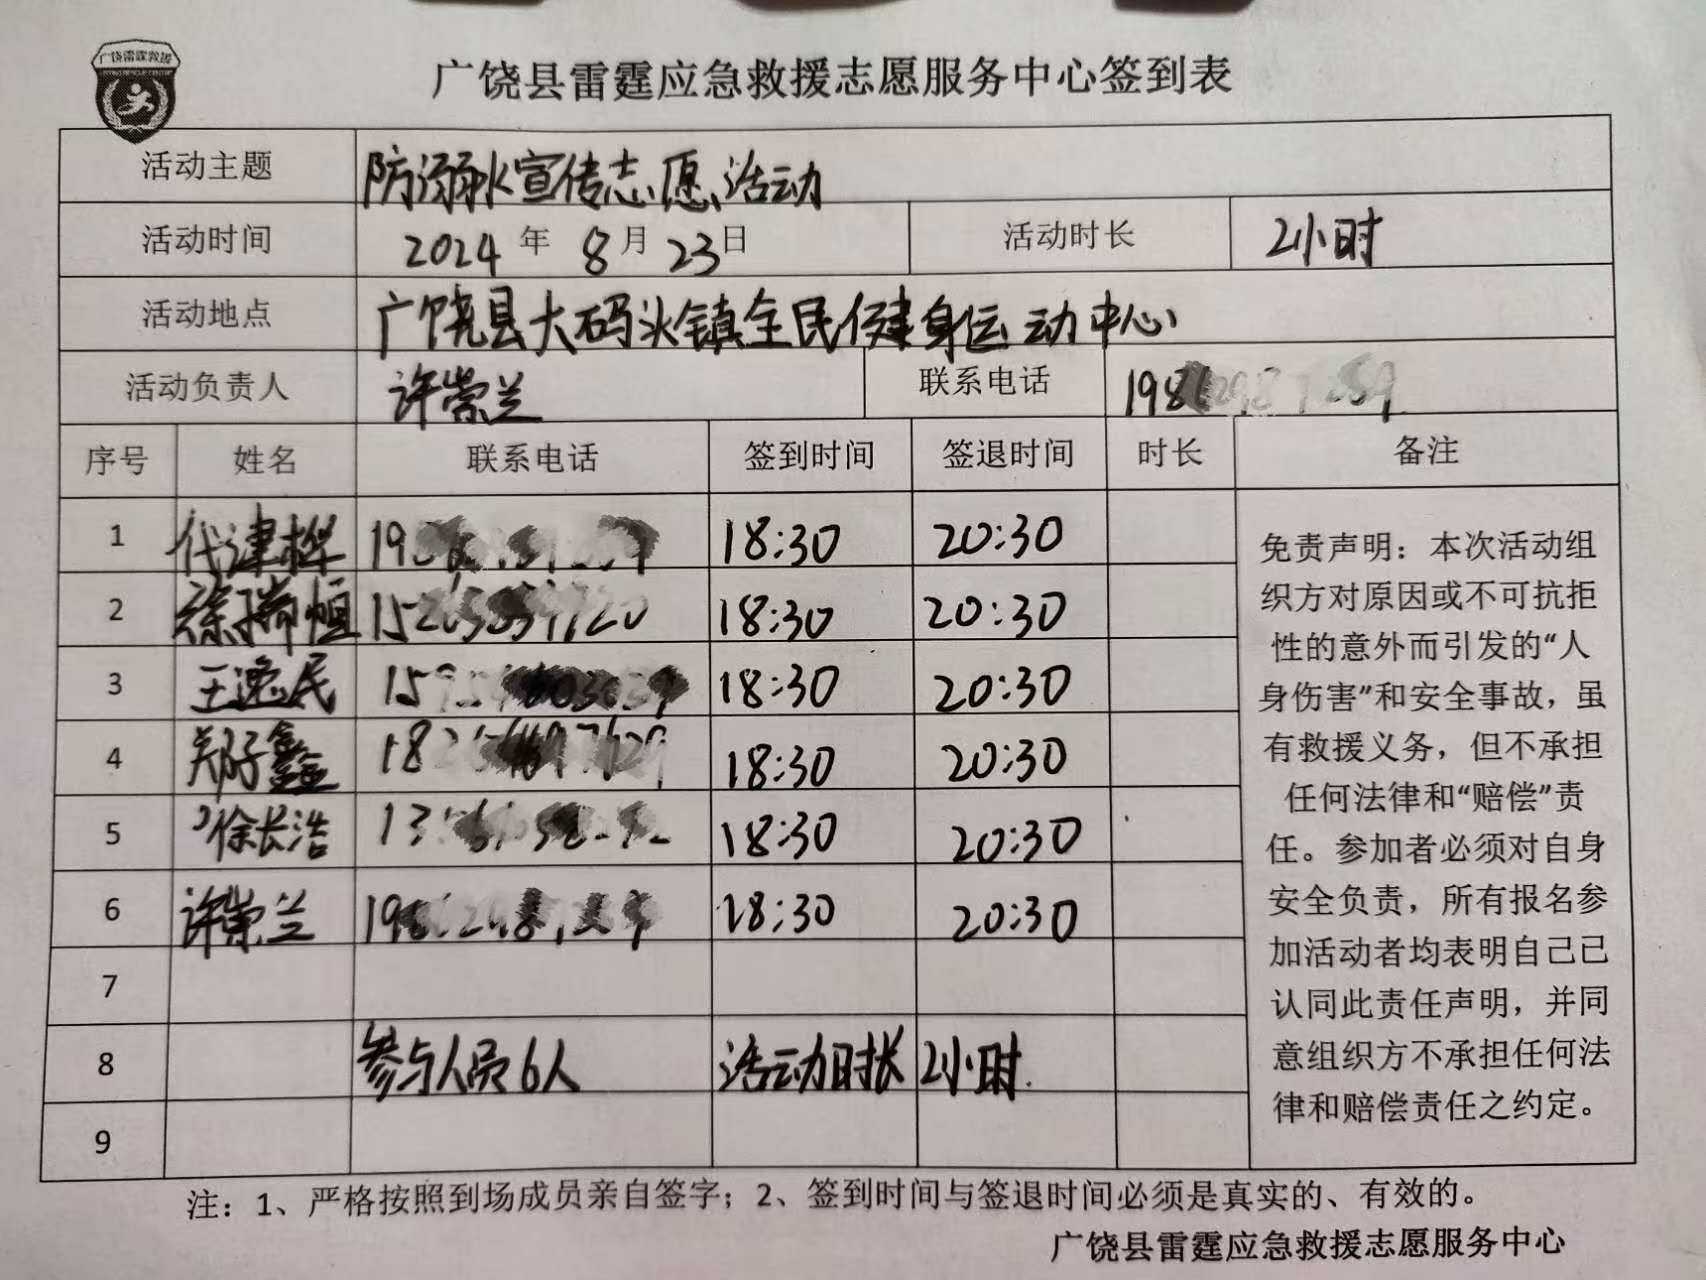 广饶雷霆救援
广饶县雷霆应急救援志愿服务中心签到表
活动主题 防溺水宣传志愿活动
活动时间 2024年8月23日 活动时长 2小时
活动地点 广饶县大码头镇全民健身运动中心
活动负责人 许崇兰 联系电话
序号 姓名 联系电话 签到时间 签退时间 时长 备注
1 代津桦 18:30 20:30
2 徐瑞恒 18:30 20:30
3 王逸民 18:30 20:30
4 郑子鑫 18:30 20:30
5 徐长浩 18:30 20:30
6 许崇兰 18:30 20:30
7
8 参与人员6人 活动时长 2小时.
9
免责声明：本次活动组
织方对原因或不可抗拒
性的意外而引发的“人
身伤害”和安全事故，虽
有救援义务，但不承担
任何法律和“赔偿”责
任。参加者必须对自身
安全负责，所有报名参
加活动者均表明自己已
认同此责任声明，并同
意组织方不承担任何法
律和赔偿责任之约定。
注：1、严格按照到场成员亲自签字；2、签到时间与签退时间必须是真实的、有效的。
广饶县雷霆应急救援志愿服务中心